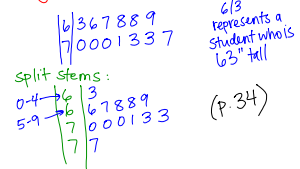 6 | 3 6 7 8 8 9
7 | 0 0 0 1 3 3 7
6/3
represents a
student who is
63" tall
split stems:
0-4 → 6 | 3
5-9 → 6 | 6 7 8 8 9
7 | 0 0 0 1 3 3
7 | 7
(p. 34)